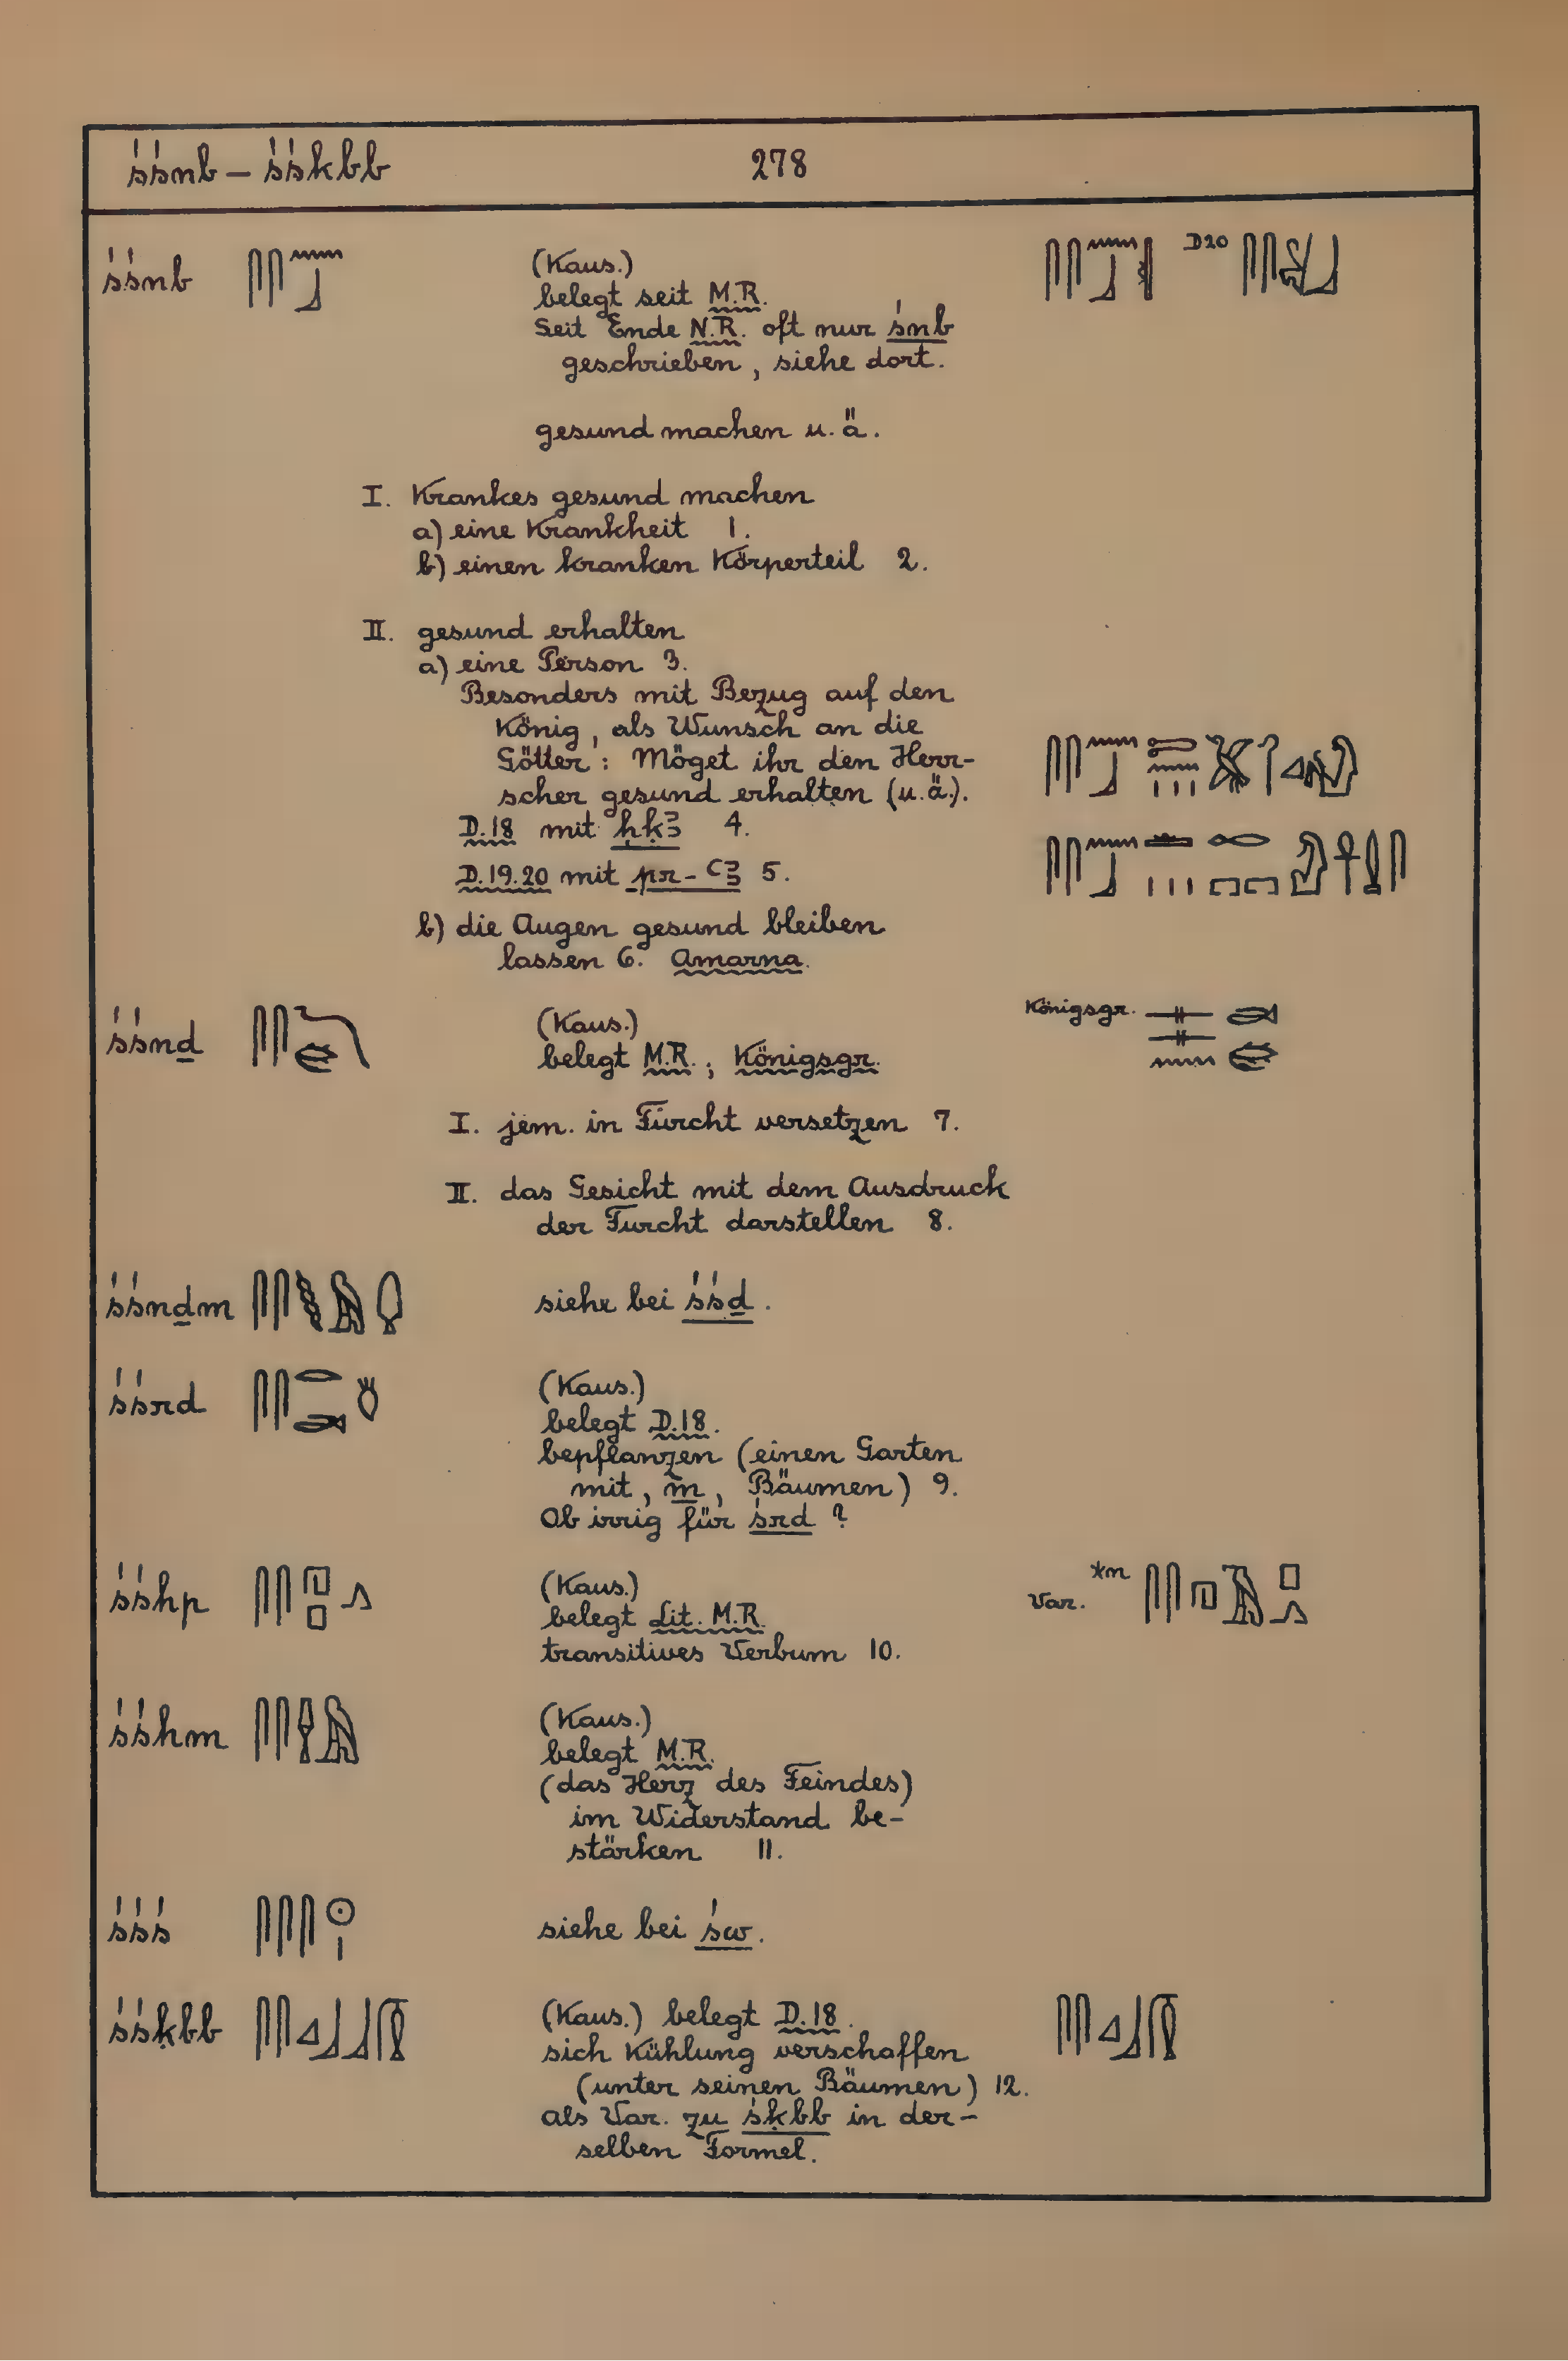 śśnb – śśḳbb 278
śśnb (Kaus.) D20
belegt seit M.R.
Seit Ende N.R. oft nur śnb
geschrieben, siehe dort.
gesund machen u. ä.
I. Krankes gesund machen
a) eine Krankheit 1.
b) einen kranken Körperteil 2.
II. gesund erhalten
a) eine Person 3.
Besonders mit Bezug auf den
König, als Wunsch an die
Götter: Möget ihr den Herr-
scher gesund erhalten (u.ä.).
D.18 mit ḥḳꜣ 4.
D.19.20 mit pr-ꜥꜣ 5.
b) die Augen gesund bleiben
lassen 6. Amarna.
śśnḏ (Kaus.) Königsgr.
belegt M.R.; Königsgr.
I. jem. in Furcht versetzen 7.
II. das Gesicht mit dem Ausdruck
der Furcht darstellen 8.
śśnḏm siehe bei śśḏ.
śśrd (Kaus.)
belegt D.18.
bepflanzen (einen Garten
mit, m, Bäumen) 9.
Ob irrig für śrd ?
śśhp (Kaus.) *m
belegt Lit. M.R. Var.
transitives Verbum 10.
śśhm (Kaus.)
belegt M.R.
(das Herz des Feindes)
im Widerstand be-
stärken 11.
śśś siehe bei św.
śśḳbb (Kaus.) belegt D.18.
sich Kühlung verschaffen
(unter seinen Bäumen) 12.
als Var. zu śḳbb in der-
selben Formel.